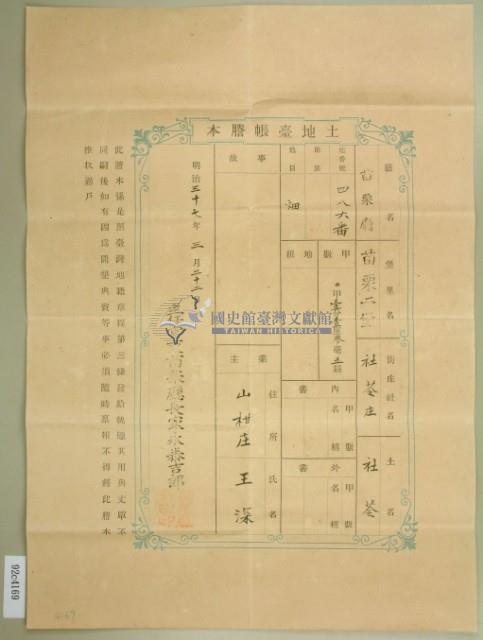 土地臺帳謄本
廳名
苗栗廳
堡里名
苗栗二堡
街庄社名
社苓庄
土名
社苓
地番號
四八六番
等則
地目
畑
甲數
地租
內書
甲數
名稱
外書
甲數
名稱
事故
業主
住所氏名
山柑庄 王深
明治三十七年三月二十二日
苗栗廳長家永泰吉郎
此謄本係是照臺灣地籍章程第三條發給就雖其用與丈單不
同嗣後如有因爲開墾典賣等事必須隨時稟報不得將此謄本
國史館臺灣文獻館
TAIWAN HISTORICA
92c4169
4169